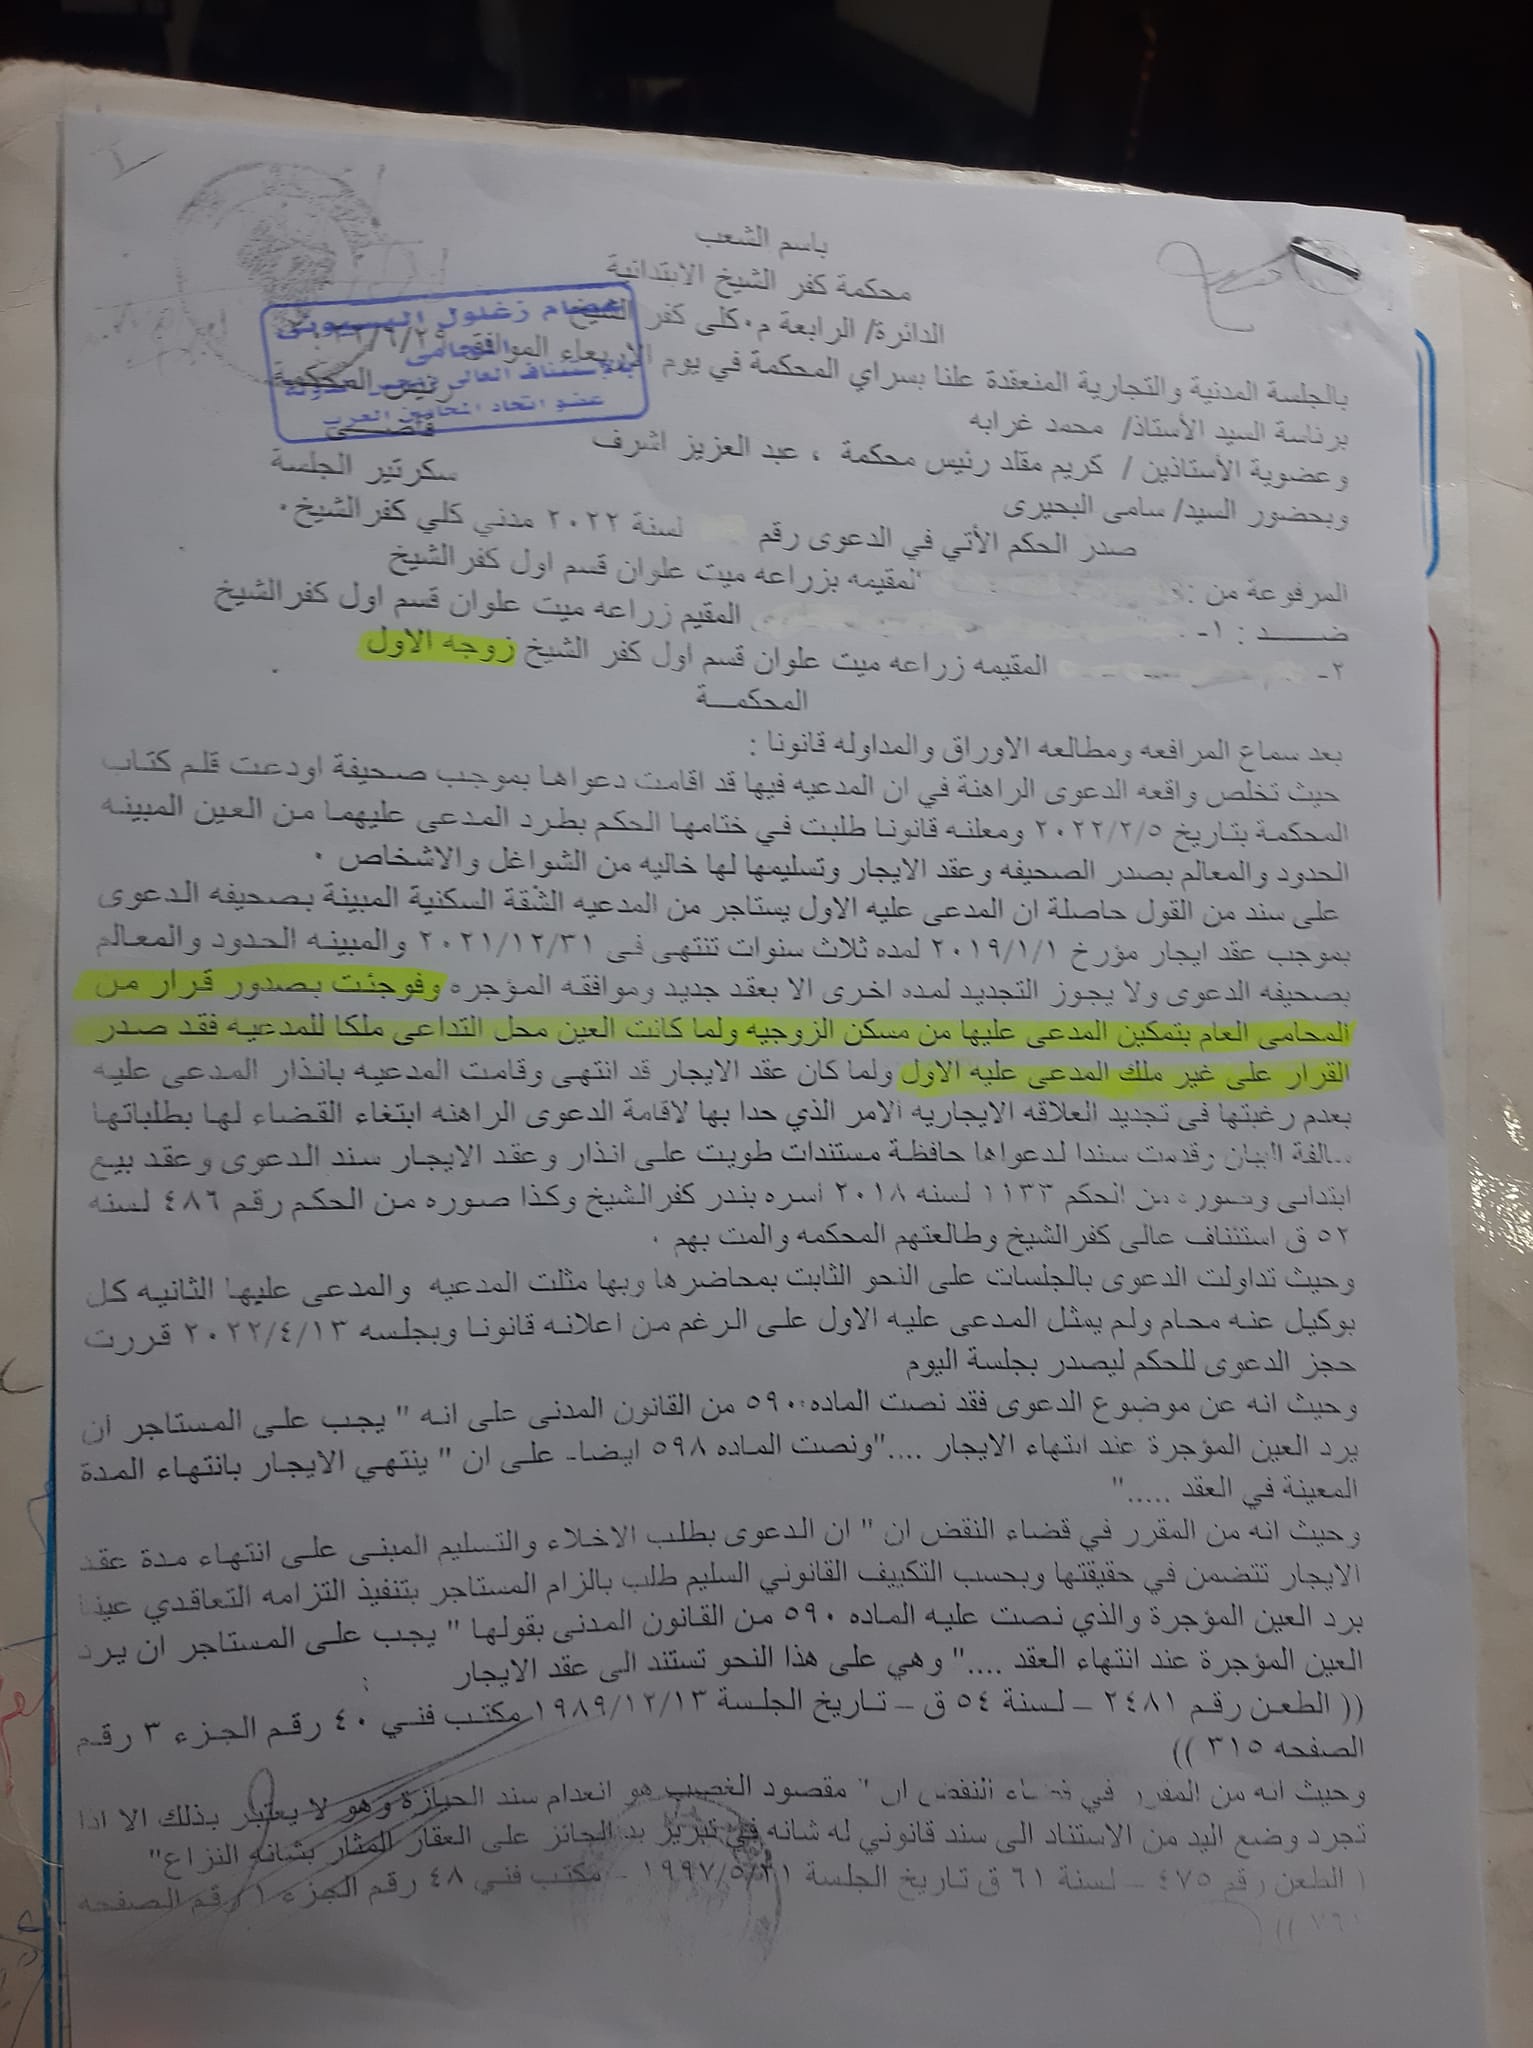 باسم الشعب
محكمة كفر الشيخ الابتدائية
الدائرة/ الرابعة م٠كلى كفر الشيخ
بالجلسة المدنية والتجارية المنعقدة علنا بسراي المحكمة في يوم الاربعاء الموافق
برئاسة السيد الأستاذ/ محمد غرابه رئيس المحكمة
وعضوية الأستاذين / كريم مقلد رئيس محكمة ، عبد العزيز اشرف قاضـــي
وبحضور السيد/ سامى البحيرى سكرتير الجلسة
عصام زغلول البسيونى
المحامى
عضو اتحاد المحامين العرب
صدر الحكم الأتي في الدعوى رقم لسنة ٢٠٢٢ مدني كلي كفر الشيخ٠
المرفوعة من : المقيمه بزراعه ميت علوان قسم اول كفر الشيخ
ضـــــد : ١- المقيم زراعه ميت علوان قسم اول كفر الشيخ
٢- المقيمه زراعه ميت علوان قسم اول كفر الشيخ زوجه الاول
المحكمـــة
بعد سماع المرافعه ومطالعه الاوراق والمداوله قانونا :
حيث تخلص واقعه الدعوى الراهنة في ان المدعيه فيها قد اقامت دعواها بموجب صحيفة اودعت قلم كتاب
المحكمة بتاريخ ٢٠٢٢/٢/٥ ومعلنه قانونا طلبت في ختامها الحكم بطرد المدعى عليهما من العين المبينه
الحدود والمعالم بصدر الصحيفه وعقد الايجار وتسليمها لها خاليه من الشواغل والاشخاص ٠
على سند من القول حاصلة ان المدعى عليه الاول يستاجر من المدعيه الشقة السكنية المبينة بصحيفه الدعوى
بموجب عقد ايجار مؤرخ ٢٠١٩/١/١ لمده ثلاث سنوات تنتهى فى ٢٠٢١/١٢/٣١ والمبينه الحدود والمعالم
بصحيفه الدعوى ولا يجوز التجديد لمده اخرى الا بعقد جديد وموافقه المؤجره وفوجئت بصدور قرار من
المحامى العام بتمكين المدعى عليها من مسكن الزوجيه ولما كانت العين محل التداعى ملكا للمدعيه فقد صدر
القرار على غير ملك المدعى عليه الاول ولما كان عقد الايجار قد انتهى وقامت المدعيه بانذار المدعى عليه
بعدم رغبتها فى تجديد العلاقه الايجاريه الامر الذي حدا بها لاقامة الدعوى الراهنه ابتغاء القضاء لها بطلباتها
سالفة البيان وقدمت سندا لدعواها حافظة مستندات طويت على انذار وعقد الايجار سند الدعوى وعقد بيع
ابتدائى وصوره من الحكم ١١٣٣ لسنه ٢٠١٨ اسره بندر كفر الشيخ وكذا صوره من الحكم رقم ٤٨٦ لسنه
٥٢ ق استئناف عالى كفر الشيخ وطالعتهم المحكمه والمت بهم ٠
وحيث تداولت الدعوى بالجلسات على النحو الثابت بمحاضرها وبها مثلت المدعيه والمدعى عليها الثانيه كل
بوكيل عنه محام ولم يمثل المدعى عليه الاول على الرغم من اعلانه قانونا وبجلسه ٢٠٢٢/٤/١٣ قررت
حجز الدعوى للحكم ليصدر بجلسة اليوم
وحيث انه عن موضوع الدعوى فقد نصت الماده ٥٩٠ من القانون المدنى على انه " يجب على المستاجر ان
يرد العين المؤجرة عند انتهاء الايجار ...."ونصت الماده ٥٩٨ ايضا- على ان " ينتهي الايجار بانتهاء المدة
المعينة في العقد ....."
وحيث انه من المقرر في قضاء النقض ان " ان الدعوى بطلب الاخلاء والتسليم المبنى على انتهاء مدة عقد
الايجار تتضمن في حقيقتها وبحسب التكييف القانوني السليم طلب بالزام المستاجر بتنفيذ التزامه التعاقدي عينا
برد العين المؤجرة والذي نصت عليه الماده ٥٩٠ من القانون المدنى بقولها " يجب على المستاجر ان يرد
العين المؤجرة عند انتهاء العقد ...." وهي على هذا النحو تستند الى عقد الايجار
(( الطعن رقم ٢٤٨١ – لسنة ٥٤ ق – تاريخ الجلسة ١٩٨٩/١٢/١٣ مكتب فني ٤٠ رقم الجزء ٣ رقم
الصفحه ٣١٥ ))
وحيث انه من المقرر في قضاء النقض ان " مقصود الغصب هو انعدام سند الحيازة وهو لا يعتبر بذلك الا اذا
تجرد وضع اليد من الاستناد الى سند قانوني له شانه في تبرير يد الحائز على العقار المثار بشانه النزاع"
( الطعن رقم ٤٧٥ – لسنة ٦١ ق تاريخ الجلسة ١٩٩٧/٥/٢١ - مكتب فني ٤٨ رقم الجزء ١ رقم الصفحه